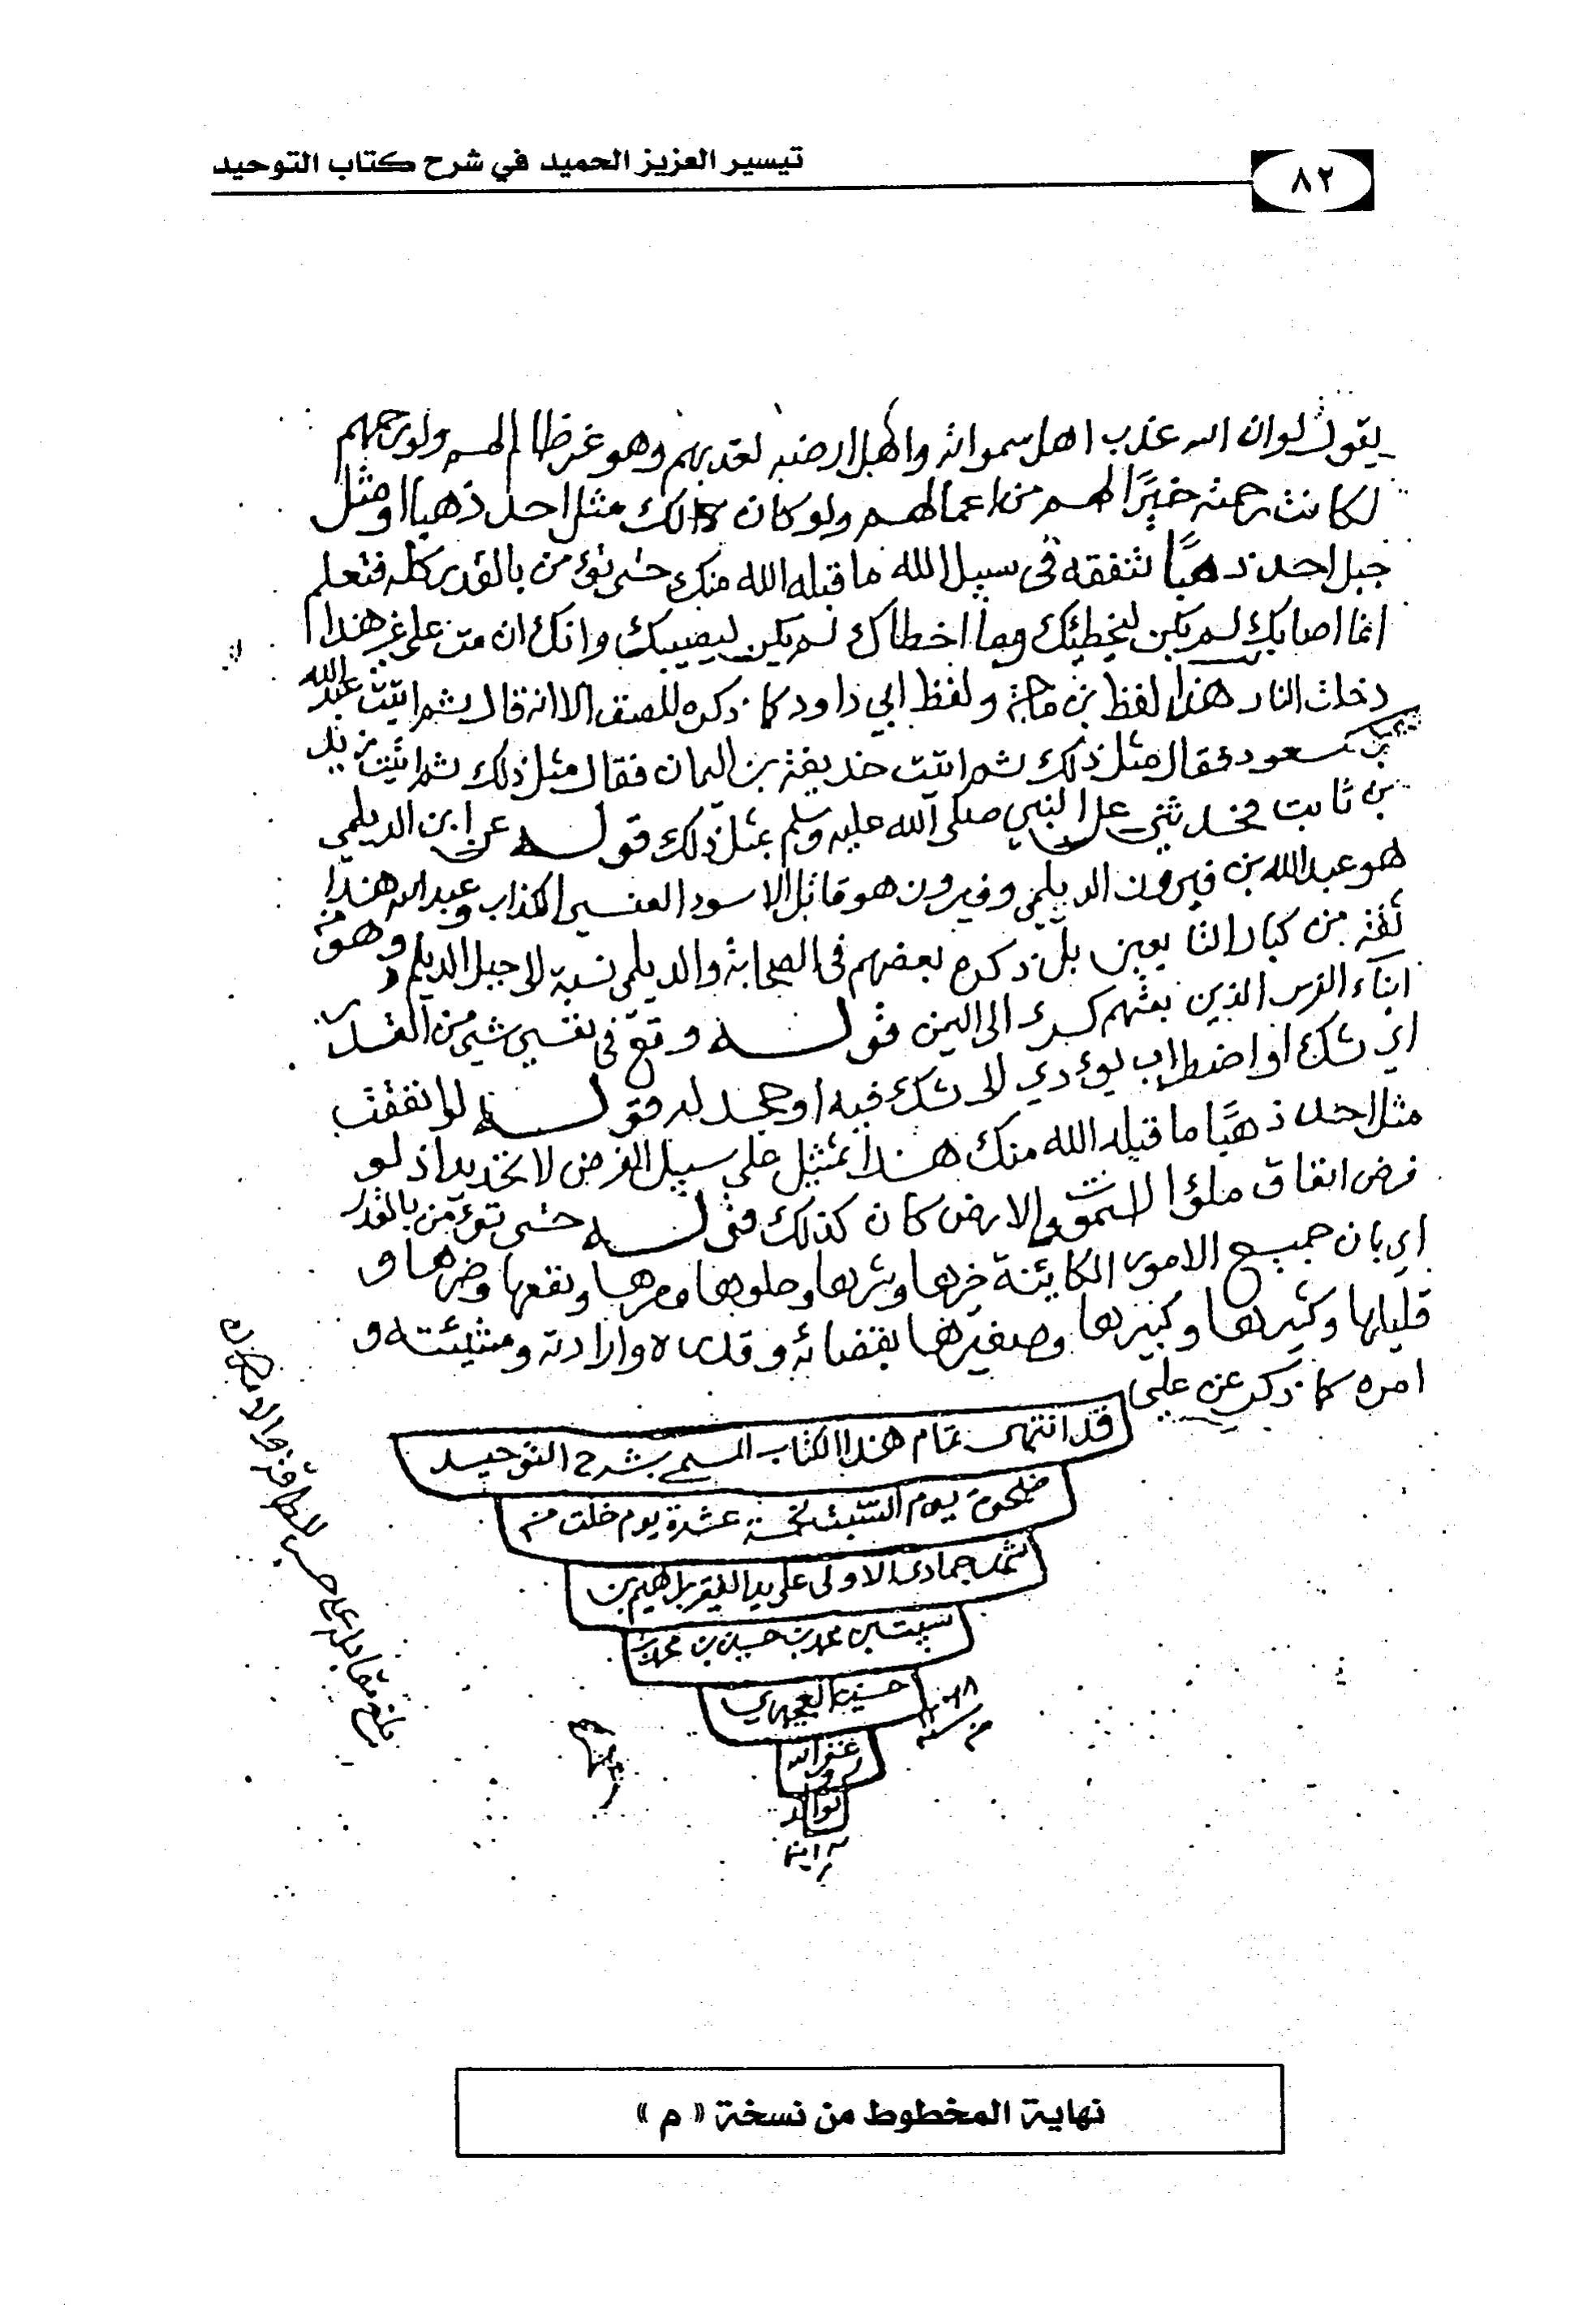 تيسير العزيز الحميد في شرح كتاب التوحيد
٨٢
يقول لو ان الله عذب اهل سمواته واهل ارضه لعذبهم وهو غير ظالم لهم ولو رحمهم
لكانت رحمته خيرًا لهم من اعمالهم ولو كان لك مثل احد ذهبا او مثل
جبل احد ذهبًا تنفقه في سبيل الله ما قبله الله منك حتى تؤمن بالقدر كله فتعلم
انما اصابك لم يكن ليخطيئك وما اخطاك لم يكن ليصيبك وانك ان مت على غير هذا
دخلت النار هذا لفظ بن ماجة ولفظ ابي داود كما ذكره المصنف الا انه قال ثم اتيت عبد الله
بن مسعود فقال مثل ذلك ثم اتيت حذيفة بن اليمان فقال مثل ذلك ثم اتيت زيد
بن ثابت فحدثني عن النبي صلى الله عليه وسلم بمثل ذلك قوله عن ابن الديلمي
هو عبد الله بن فيروز الديلمي وفيروز هو قاتل الاسود العنسي الكذاب وعبد الله هذا
ثقة من كبار التابعين بل ذكره بعضهم في الصحابة والديلمي نسبة الى جبل الديلم وهو من
ابناء الفرس الذين بعثهم كسرى الى اليمن قوله وقع في نفسي شيء من القدر
اي شك او اضطراب يؤدي الى شك فيه او جحد له قوله لو انفقت
مثل احد ذهبًا ما قبله الله منك هذا تمثيل على سبيل الفرض لا تحديد اذ لو
فرض انفاق ملؤ السموات والارض كان كذلك قوله حتى تؤمن بالقدر
اي بان جميع الامور الكائنة خيرها وشرها وحلوها ومرها ونفعها وضرها و
قليلها وكثيرها وكبيرها وصغيرها بقضائه وقدره وارادته ومشيئته و
امره كما ذكر عن علي
قد انتهى تمام هذا الكتاب المسمى بشرح التوحيد
ضحوة يوم السبت لخمسة عشرة يوم خلت من
شهر جمادى الاولى على يد الفقير ابراهيم بن
محمد بن حسين بن محمد بن
حسين
من سنة
غفر الله
له و
لوالد
يه امين
بلغ مقابلة على حسب الطاقة والامكان
نهاية المخطوط من نسخة « م »